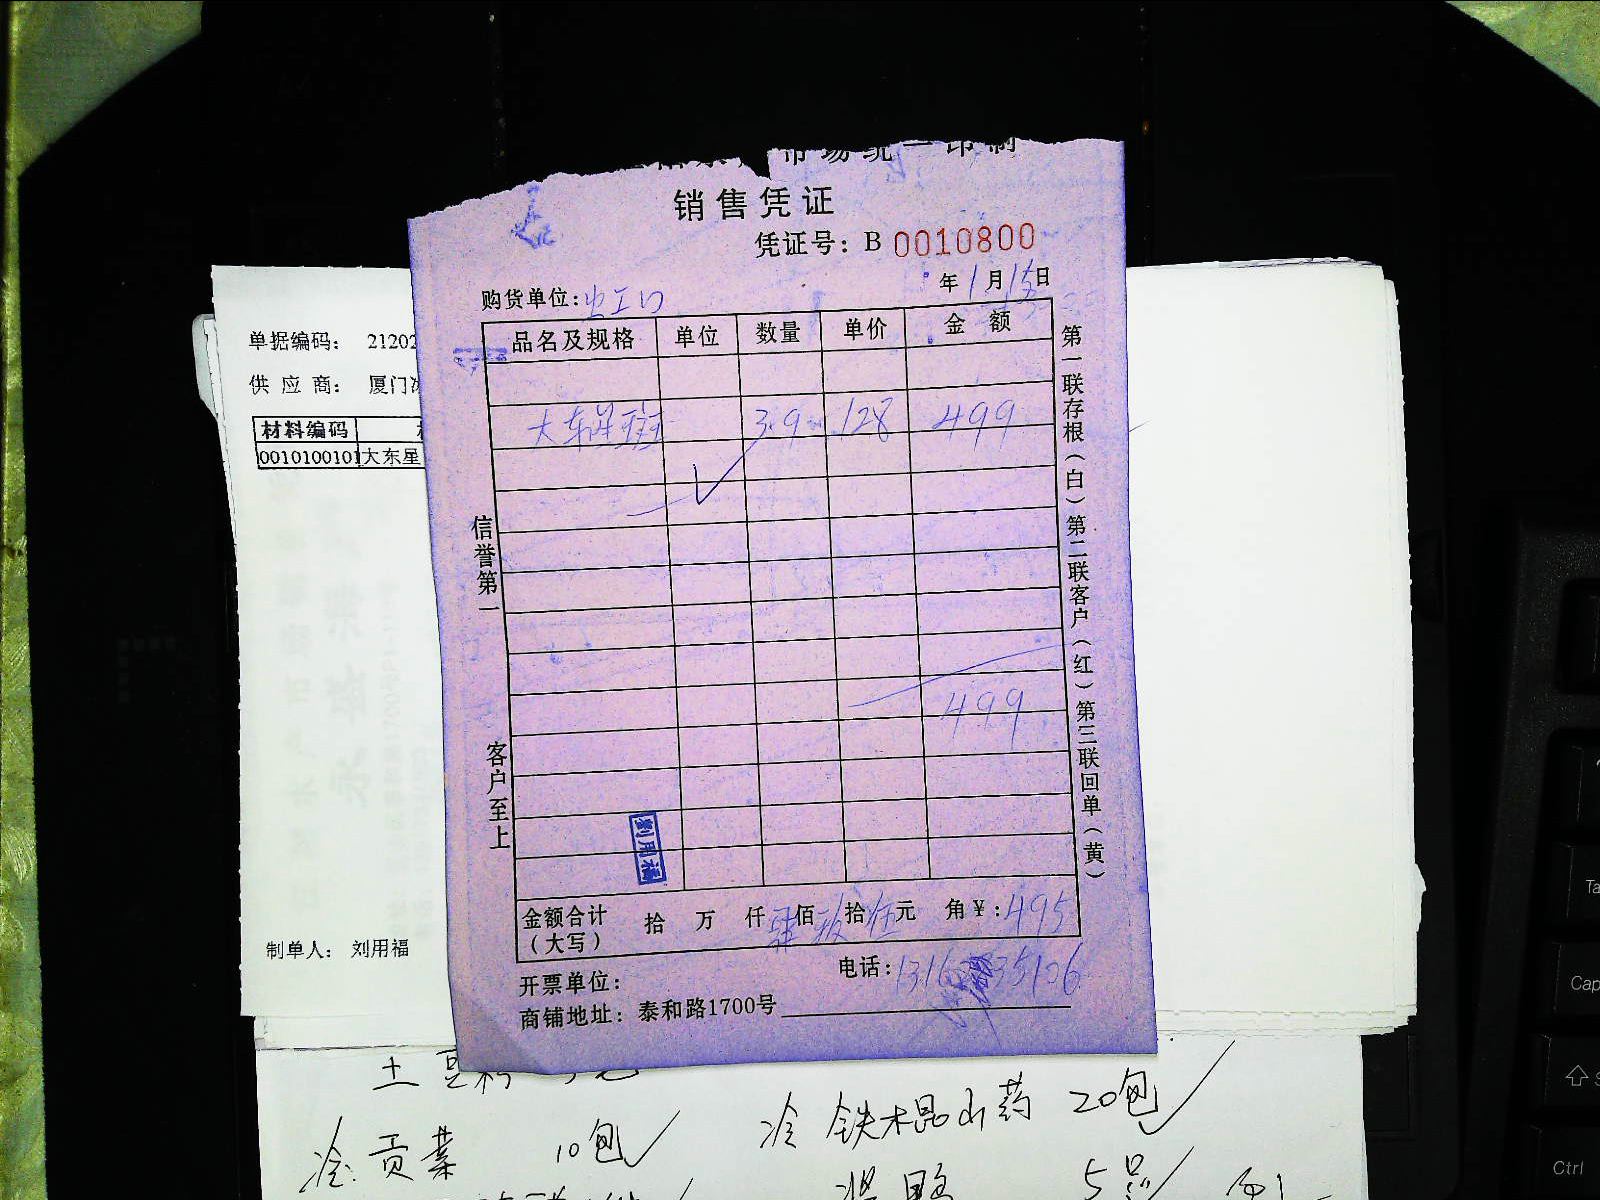 市场统一印制
销售凭证
凭证号：B 0010800
年1月15日
购货单位：
品名及规格 单位 数量 单价 金额
大东星斑 3.9 128 499
499
信誉第一
客户至上
第一联存根（白）第二联客户（红）第三联回单（黄）
刘用福
金额合计（大写） 拾 万 仟 肆佰玖拾伍元 角￥：495
开票单位：
电话：
商铺地址：泰和路1700号
单据编码： 21202
供应商： 厦门
材料编码
0010100101 大东星
制单人： 刘用福
土豆粉
冷 贡菜 10包
冷 铁木昆山药 20包
5只
Ctrl